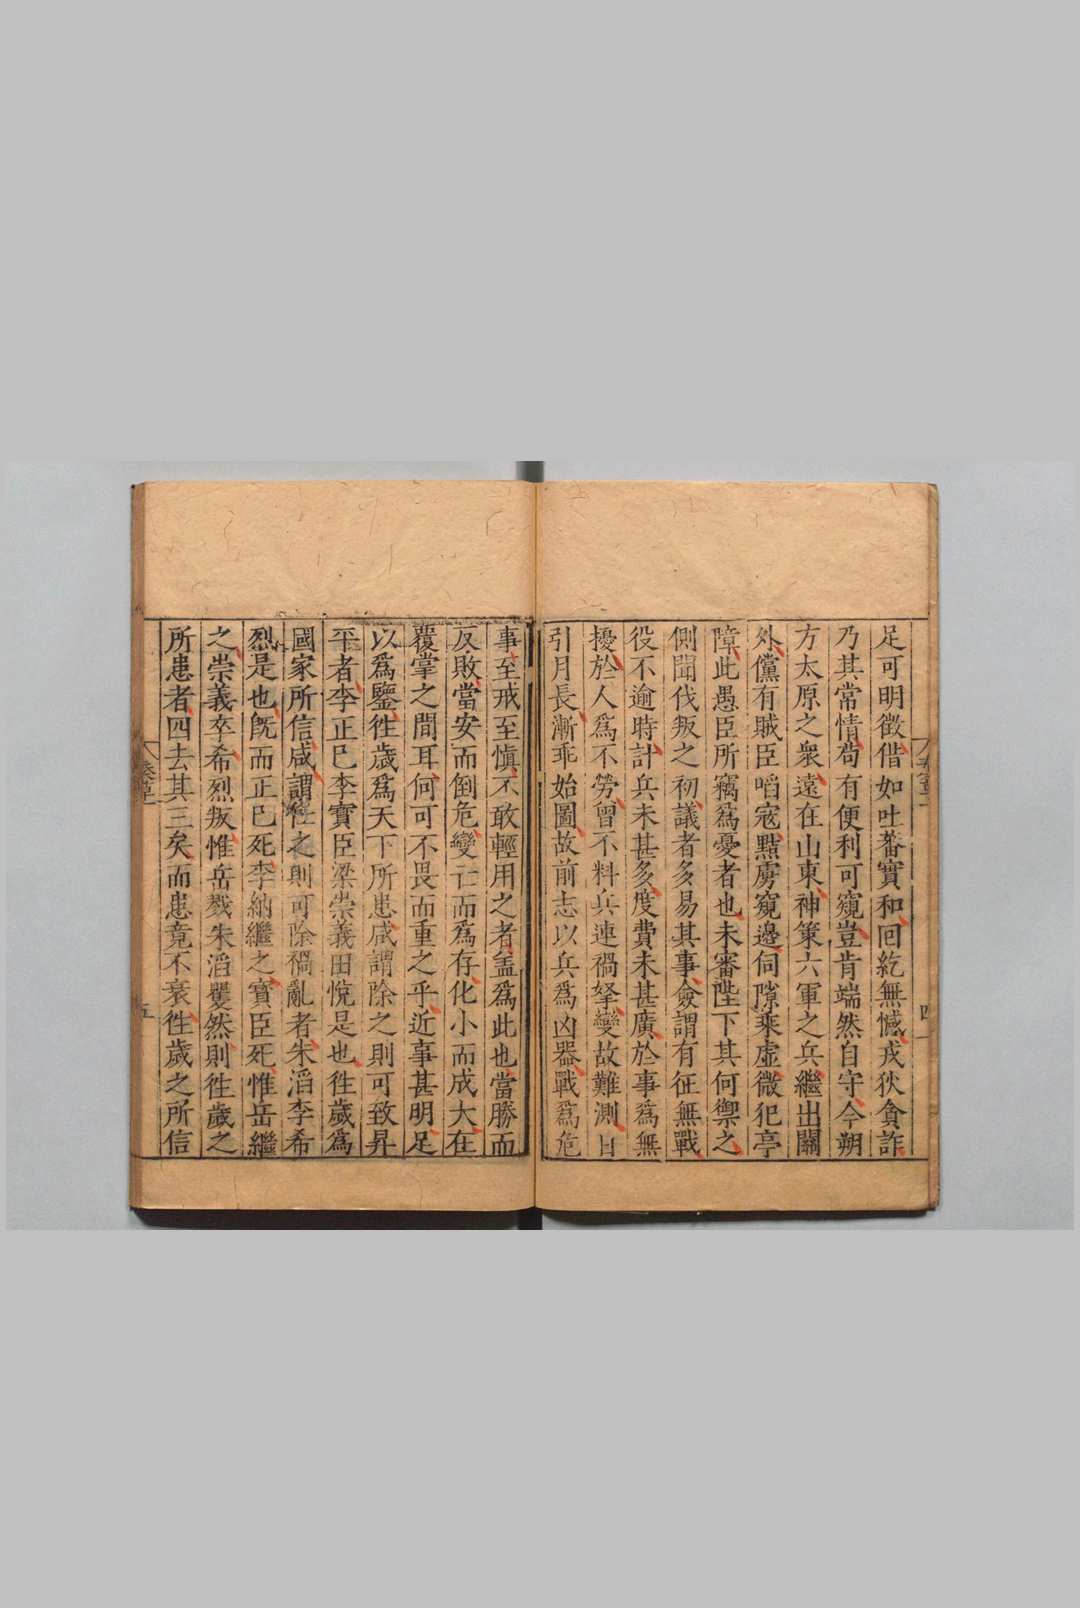 足可明徵借如吐蕃實和回紇無憾戎狄貪詐
乃其常情茍有便利可窺豈肯端然自守今朔
方太原之衆遠在山東神策六軍之兵繼出關
外儻有賊臣啗寇黠虜窺邊伺隙乘虛微犯亭
障此愚臣所竊為憂者也未審陛下其何禦之
側聞伐叛之初議者多易其事僉謂有征無戰
役不逾時計兵未甚多度費未甚廣於事為無
擾於人為不勞曾不料兵連禍拏變故難測日
引月長漸乖始圖故前志以兵為凶器戰為危
事至戒至慎不敢輕用之者盖為此也當勝而
反敗當安而倒危變亡而為存化小而成大在
覆掌之間耳何可不畏而重之乎近事甚明足
以為鑒徃歲為天下所患咸謂除之則可致昇
平者李正巳李寶臣梁崇義田悅是也徃歲為
國家所信咸謂任之則可除禍亂者朱滔李希
烈是也旣而正巳死李納繼之寶臣死惟岳繼
之崇義卒希烈叛惟岳戮朱滔㩦然則徃歲之
所患者四去其三矣而患竟不衰徃歲之所信
四
五